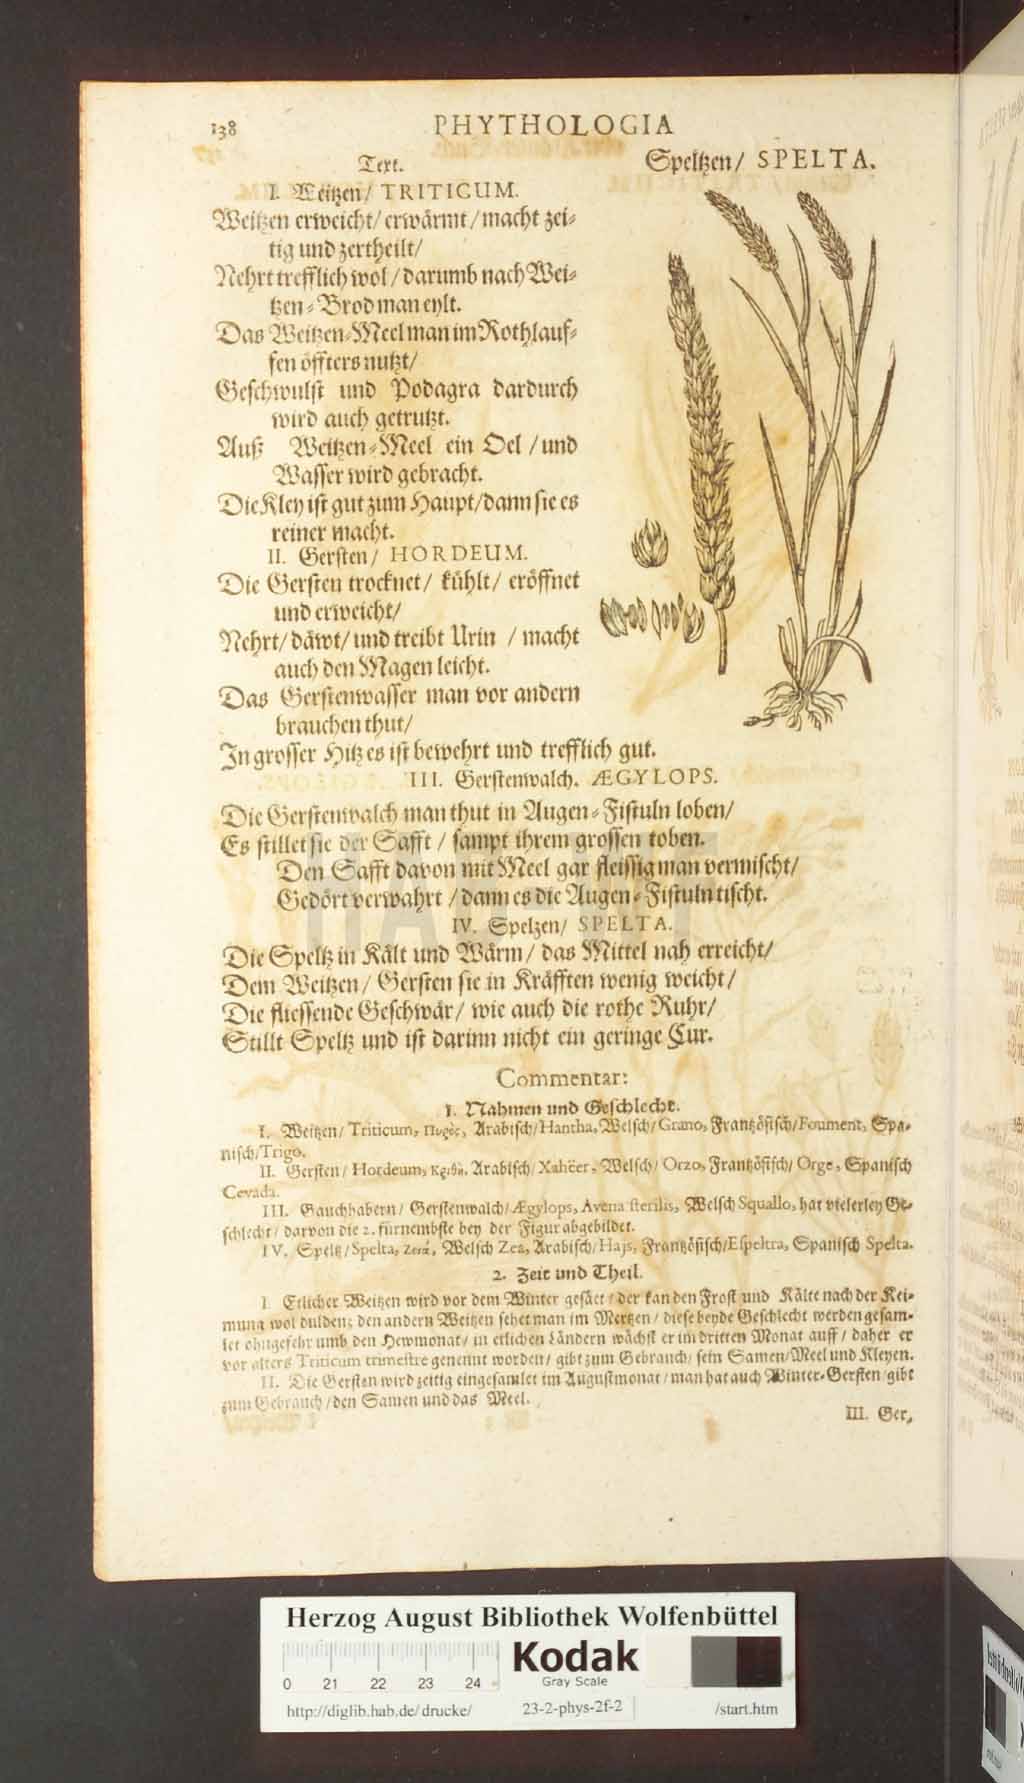 138
PHYTHOLOGIA
Text.
Speltzen/ SPELTA.
I. Weitzen/ TRITICUM.
Weitzen erweicht/ erwärmt/ macht zei-
tig und zertheilt/
Nehrt trefflich wol/ darumb nach Wei-
tzen-Brod man eylt.
Das Weitzen-Meel man im Rothlauf-
fen öffters nutzt/
Geschwulst und Podagra dardurch
wird auch getrutzt.
Auß Weitzen-Meel ein Oel / und
Wasser wird gebracht.
Die Kley ist gut zum Haupt/ dann sie es
reiner macht.
II. Gersten/ HORDEUM.
Die Gersten trocknet/ kühlt/ eröffnet
und erweicht/
Nehrt/ däwt/ und treibt Urin / macht
auch den Magen leicht.
Das Gerstenwasser man vor andern
brauchen thut/
In grosser Hitz es ist bewehrt und trefflich gut.
III. Gerstenwalch. ÆGYLOPS.
Die Gerstenwalch man thut in Augen-Fistuln loben/
Es stillet sie der Safft / sampt ihrem grossen toben.
Den Safft davon mit Meel gar fleissig man vermischt/
Gedört verwahrt / dann es die Augen-Fistuln tischt.
IV. Spelzen/ SPELTA.
Die Speltz in Kält und Wärm/ das Mittel nah erreicht/
Dem Weitzen/ Gersten sie in Kräfften wenig weicht/
Die fliessende Geschwär/ wie auch die rothe Ruhr/
Stillt Speltz und ist darinn nicht ein geringe Cur.
Commentar:
1. Nahmen und Geschlecht.
I. Weitzen/ Triticum, Πυρὸς, Arabisch/ Hantha, Welsch/ Grano, Frantzösisch/ Foument, Spa-
nisch/ Trigo.
II. Gersten/ Hordeum, Κριθὴ, Arabisch/ Xahćer, Welsch/ Orzo, Frantzösisch/ Orge, Spanisch
Cevada.
III. Gauchhabern/ Gerstenwalch/ Ægylops, Avena sterilis, Welsch Squallo, hat vielerley Ge-
schlecht/ darvon die 2. fürnembste bey der Figur abgebildet.
IV. Speltz/ Spelta, Ζειά, Welsch Zea, Arabisch/ Hajs, Frantzösisch/ Espeltra, Spanisch Spelta.
2. Zeit und Theil.
I. Etlicher Weitzen wird vor dem Winter gesäet/ der kan den Frost und Kälte nach der Kei-
mung wol dulden; den andern Weitzen sehet man im Mertzen/ diese beyde Geschlecht werden gesam-
let ohngefehr umb den Hewmonat/ in etlichen Ländern wächst er im dritten Monat auff/ daher er
vor alters Triticum trimestre genennt worden/ gibt zum Gebrauch/ sein Samen/ Meel und Kleyen.
II. Die Gersten wird zeitig eingesamlet im Augustmonat/ man hat auch Winter-Gersten/ gibt
zum Gebrauch/ den Samen und das Meel.
III. Ger-
Herzog August Bibliothek Wolfenbüttel
Kodak
Gray Scale
0 21 22 23 24
http://diglib.hab.de/drucke/ 23-2-phys-2f-2 /start.htm